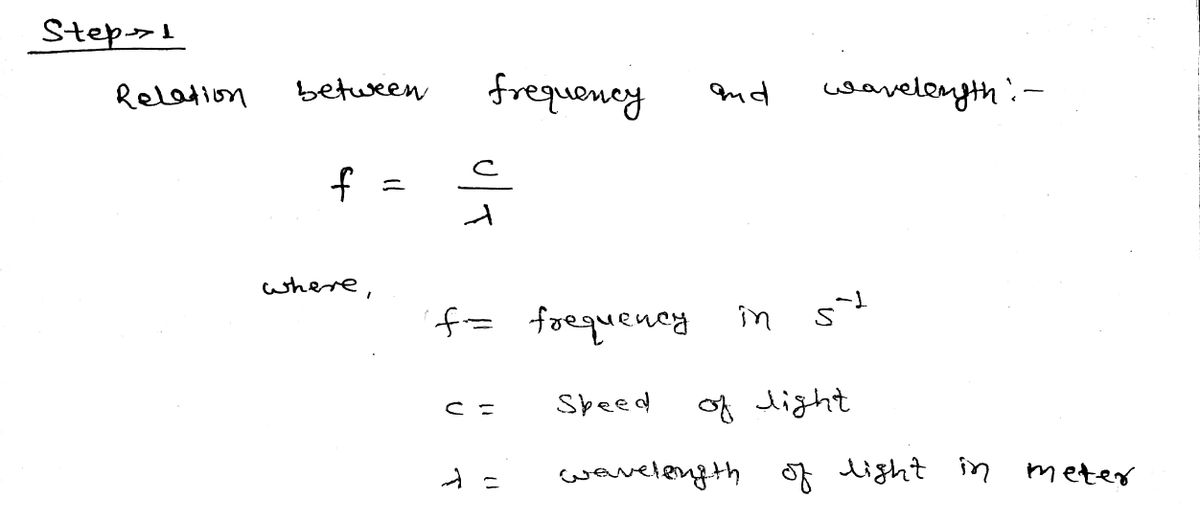 Step→1
Relation between frequency and wavelength:-
f = c/λ
where,
f = frequency in s⁻¹
c = Speed of light
λ = wavelength of light in meter